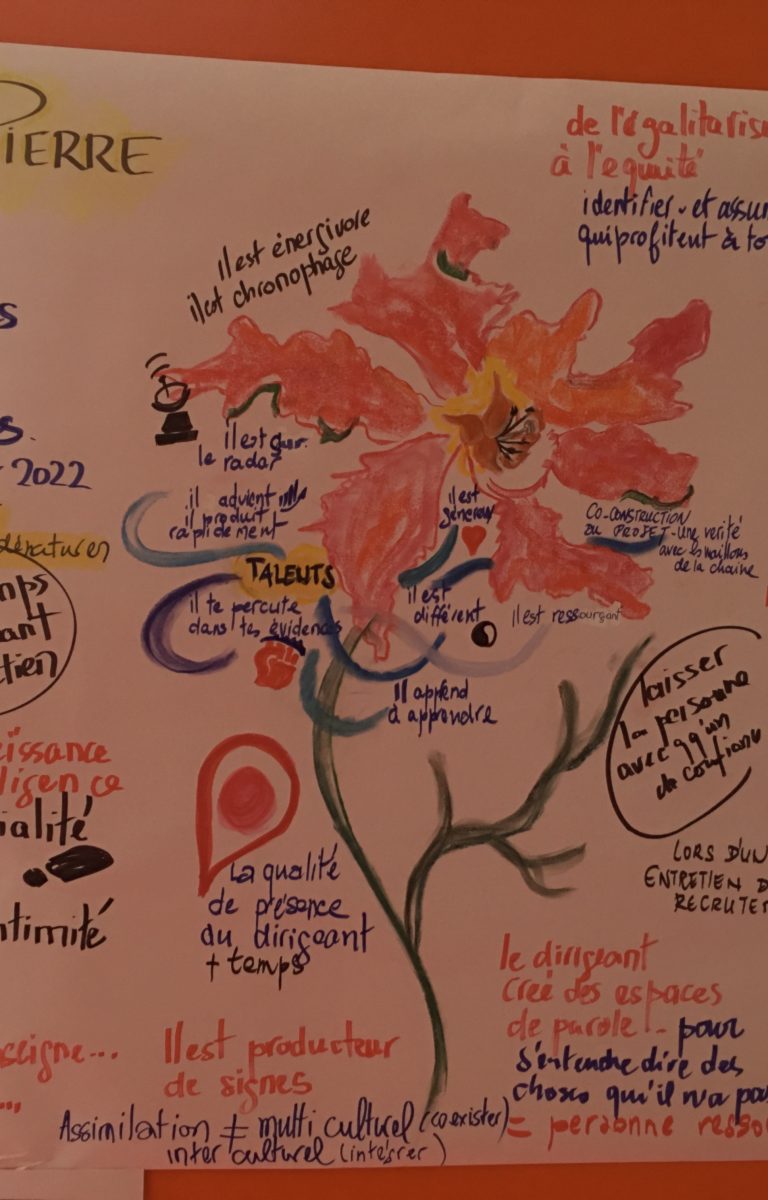 PIERRE
de l'égalitaris
à l'equité
identifier - et assum
qui profitent à to
Il est énergivore
il est chronophage
il est
le radar
il advient
il produit
rapidement
TALENTS
il te percute
dans tes évidences
il est
généreux
il est
différent
il est ressourçant
Il apprend
à apprendre
CO-CONSTRUCTION
DU PROJET - une verité
avec les maillons
de la chaine
laisser
la personne
avec qq'un
de confiance
LORS D'UN
ENTRETIEN D
RECRUTEM
s
s.
2022
nps
ant
tien
issance
ligence
ialité
ntimité
seigne...
La qualité
de présence
du dirigeant
+ temps
Il est producteur
de signes
le dirigeant
créé des espaces
de parole - pour
s'entendre dire des
choses qu'il n'a pas
= personne resso
Assimilation ≠ multi culturel (coexister)
inter culturel (intégrer)